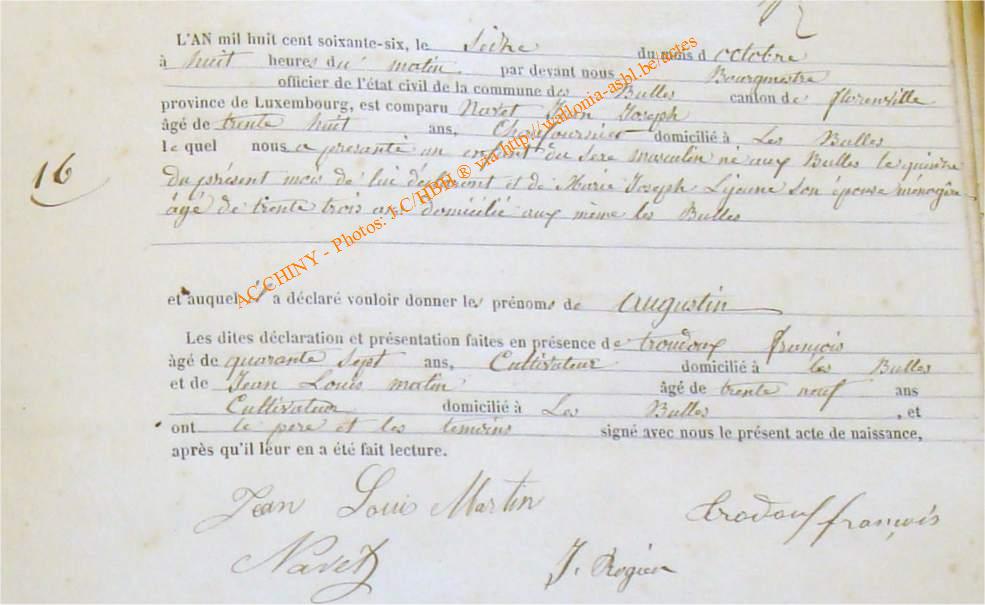 L'AN mil huit cent soixante-six, le Seize du mois d octobre
à huit heures du matin par devant nous Bourgmestre
officier de l'état civil de la commune des Bulles canton de florenville
province de Luxembourg, est comparu Navet Jean Joseph
âgé de trente huit ans, domicilié à Les Bulles
le quel nous a présanté un enfant du sexe masculin né aux Bulles le quinze
du présent mois de lui déclarant et de Marie Joseph Lejeune son épouse ménagère
âgé de trente trois ans domicilié aux même les Bulles
16
et auquel il a déclaré vouloir donner les prénoms de augustin
Les dites déclaration et présentation faites en présence de françois
âgé de quarante sept ans, Cultivateur domicilié à les Bulles
et de Jean Louis matin âgé de trente neuf ans
Cultivateur domicilié à Les Bulles , et
ont le pere et les temoins signé avec nous le présent acte de naissance,
après qu'il leur en a été fait lecture.
Jean Louis Martin françois
Navet J. Rogier
AC CHINY - Photos: J.C/HBH ® via http://wallonia-asbl.be/actes